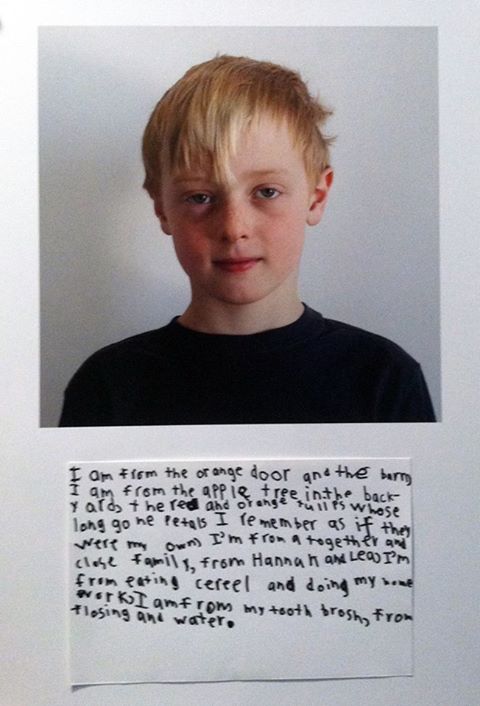 I am from the orange door and the barn,
I am from the apple tree in the back-
yard, the red and orange tulips whose
long gone petals I remember as if they
were my own, I'm from a together and
close family, from Hannah and Lea, I'm
from eating cereel and doing my home
work, I am from my tooth brosh, from
flosing and water.